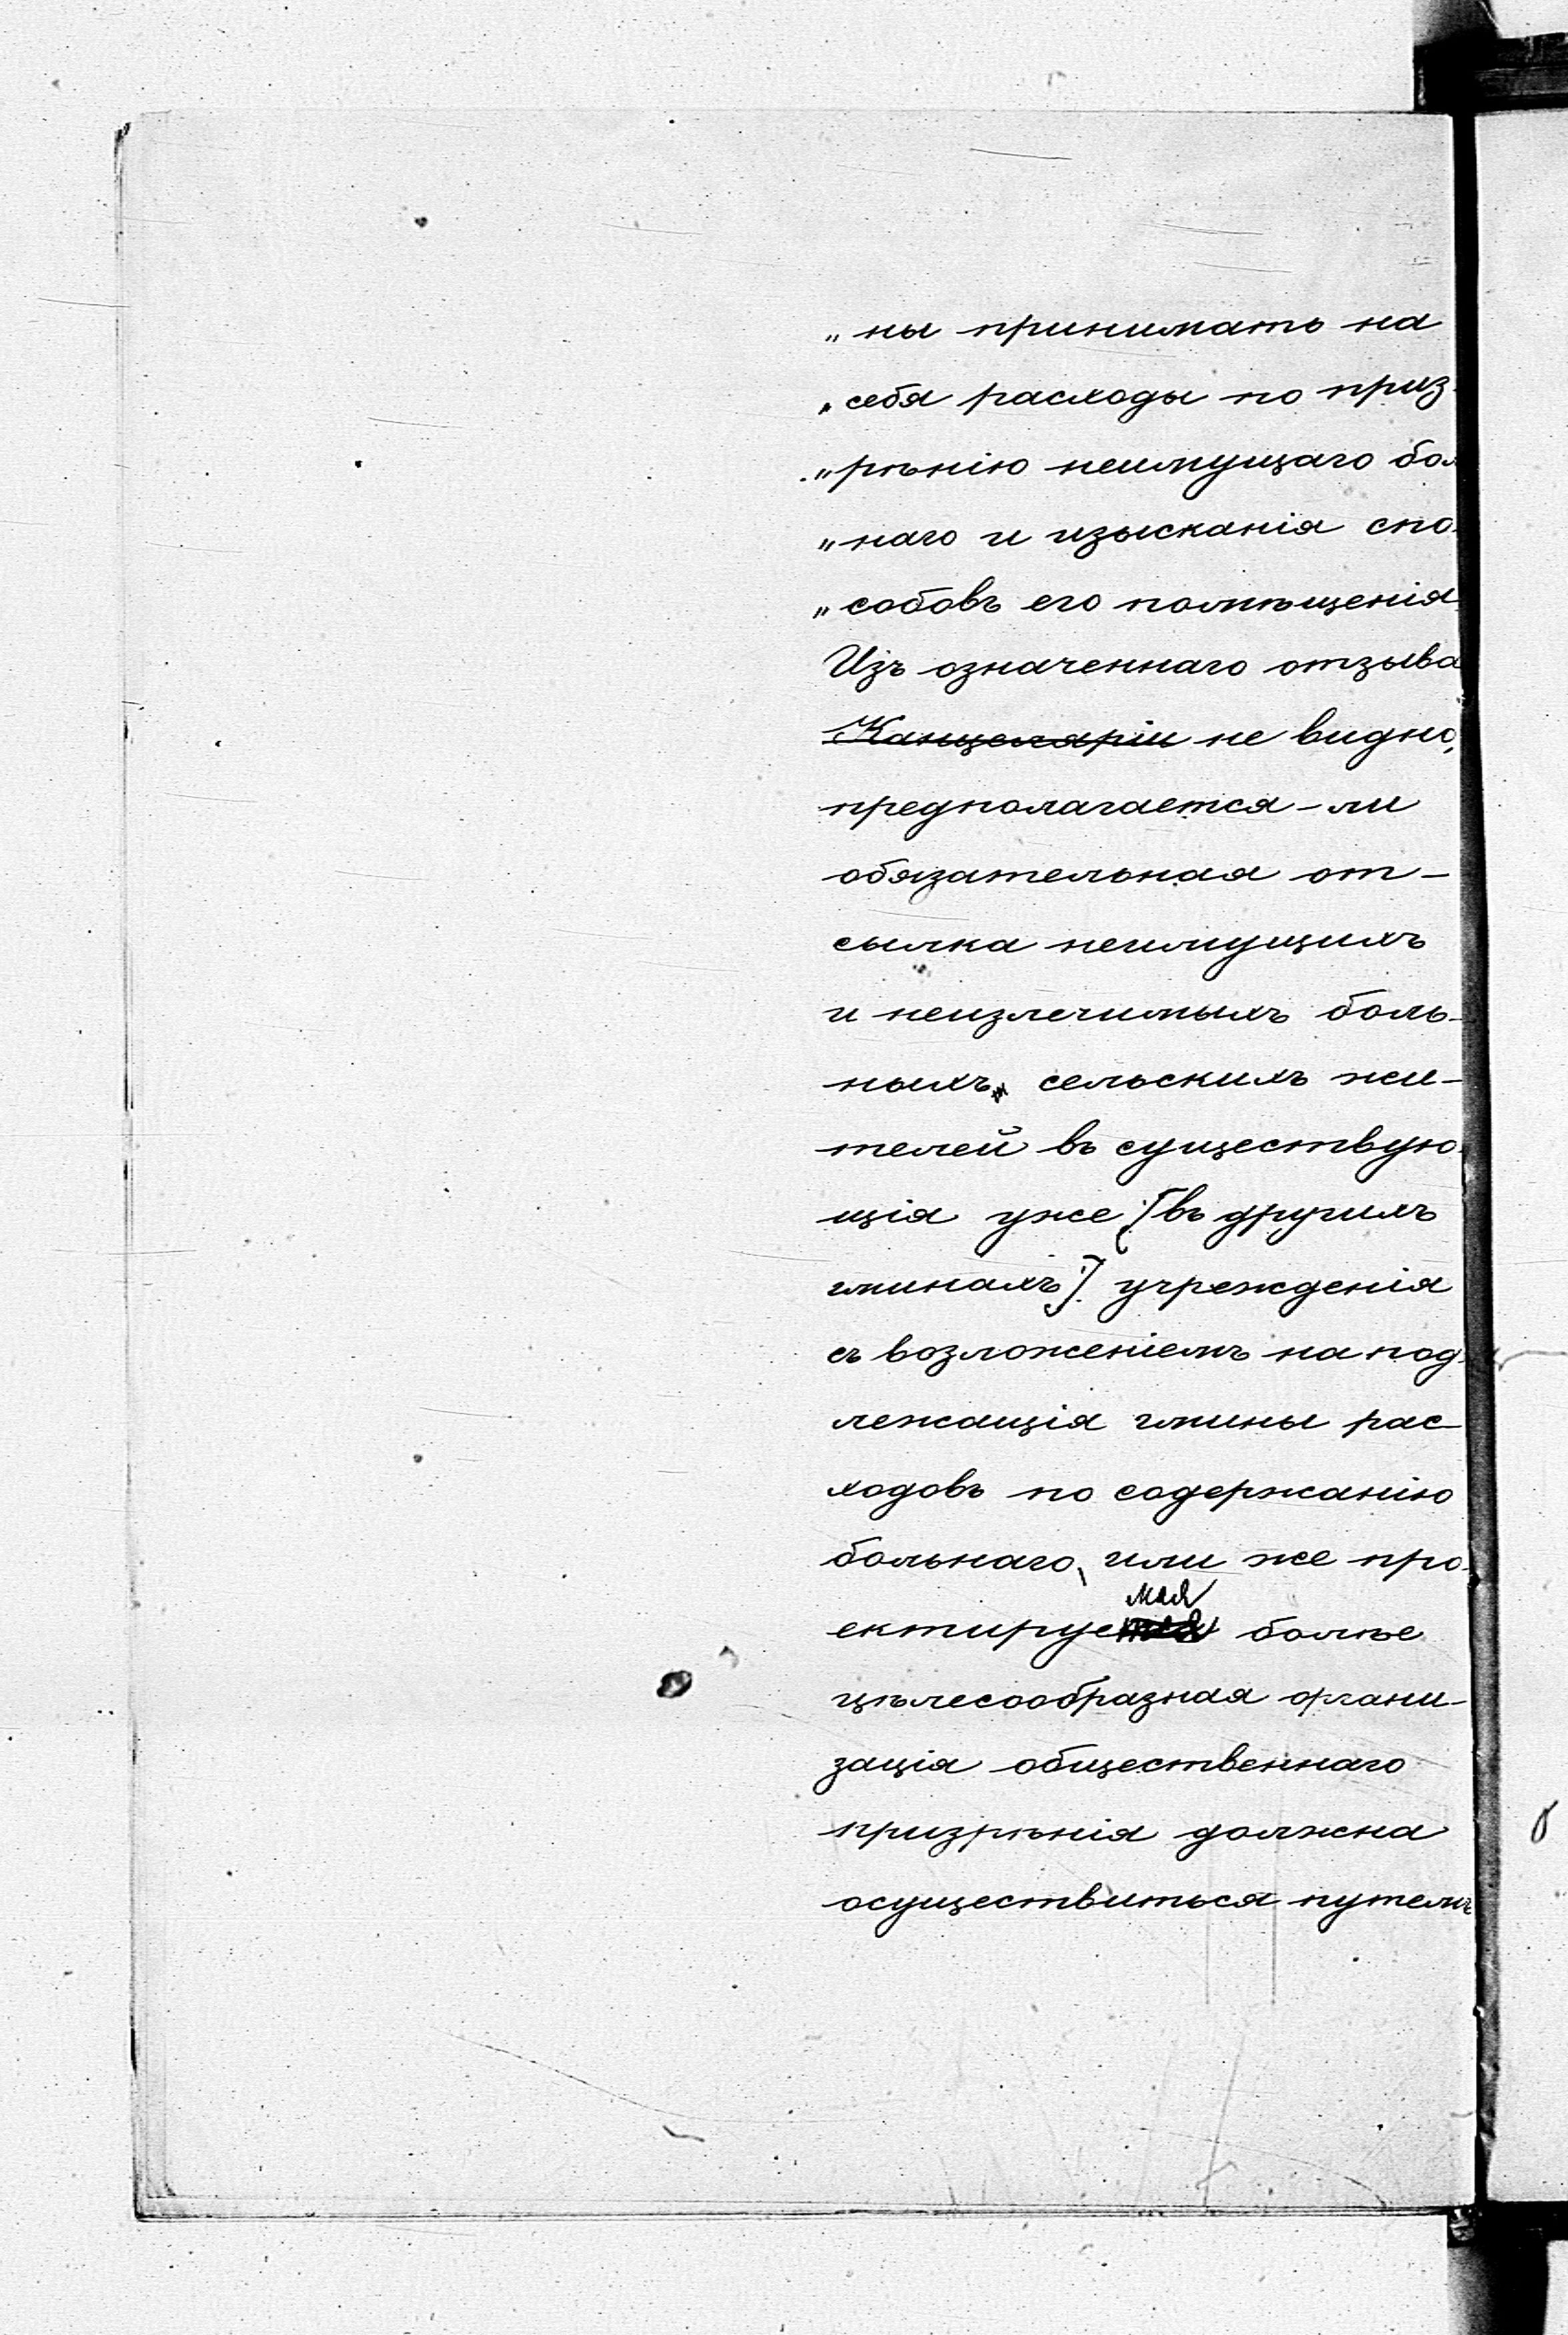 „ны принимать на
„себя расходы по приз-
„рѣнію неимущаго бол
„наго и изысканія спо-
„собовъ его помѣщенія.
Изъ означеннаго отзыва
Канцеляріи не видно,
предполагается-ли
обязательная от-
сылка неимущихъ
и неизлечимыхъ боль-
ныхъ сельскихъ жи-
телей въ существую-
щія уже [въ другихъ
гминахъ] учрежденія
съ возложеніемъ на под-
лежащія гмины рас-
ходовъ по содержанію
больнаго, или же про-
мая
ектируется болѣе
цѣлесообразная органи-
зація общественнаго
призрѣнія должна
осуществиться путемъ